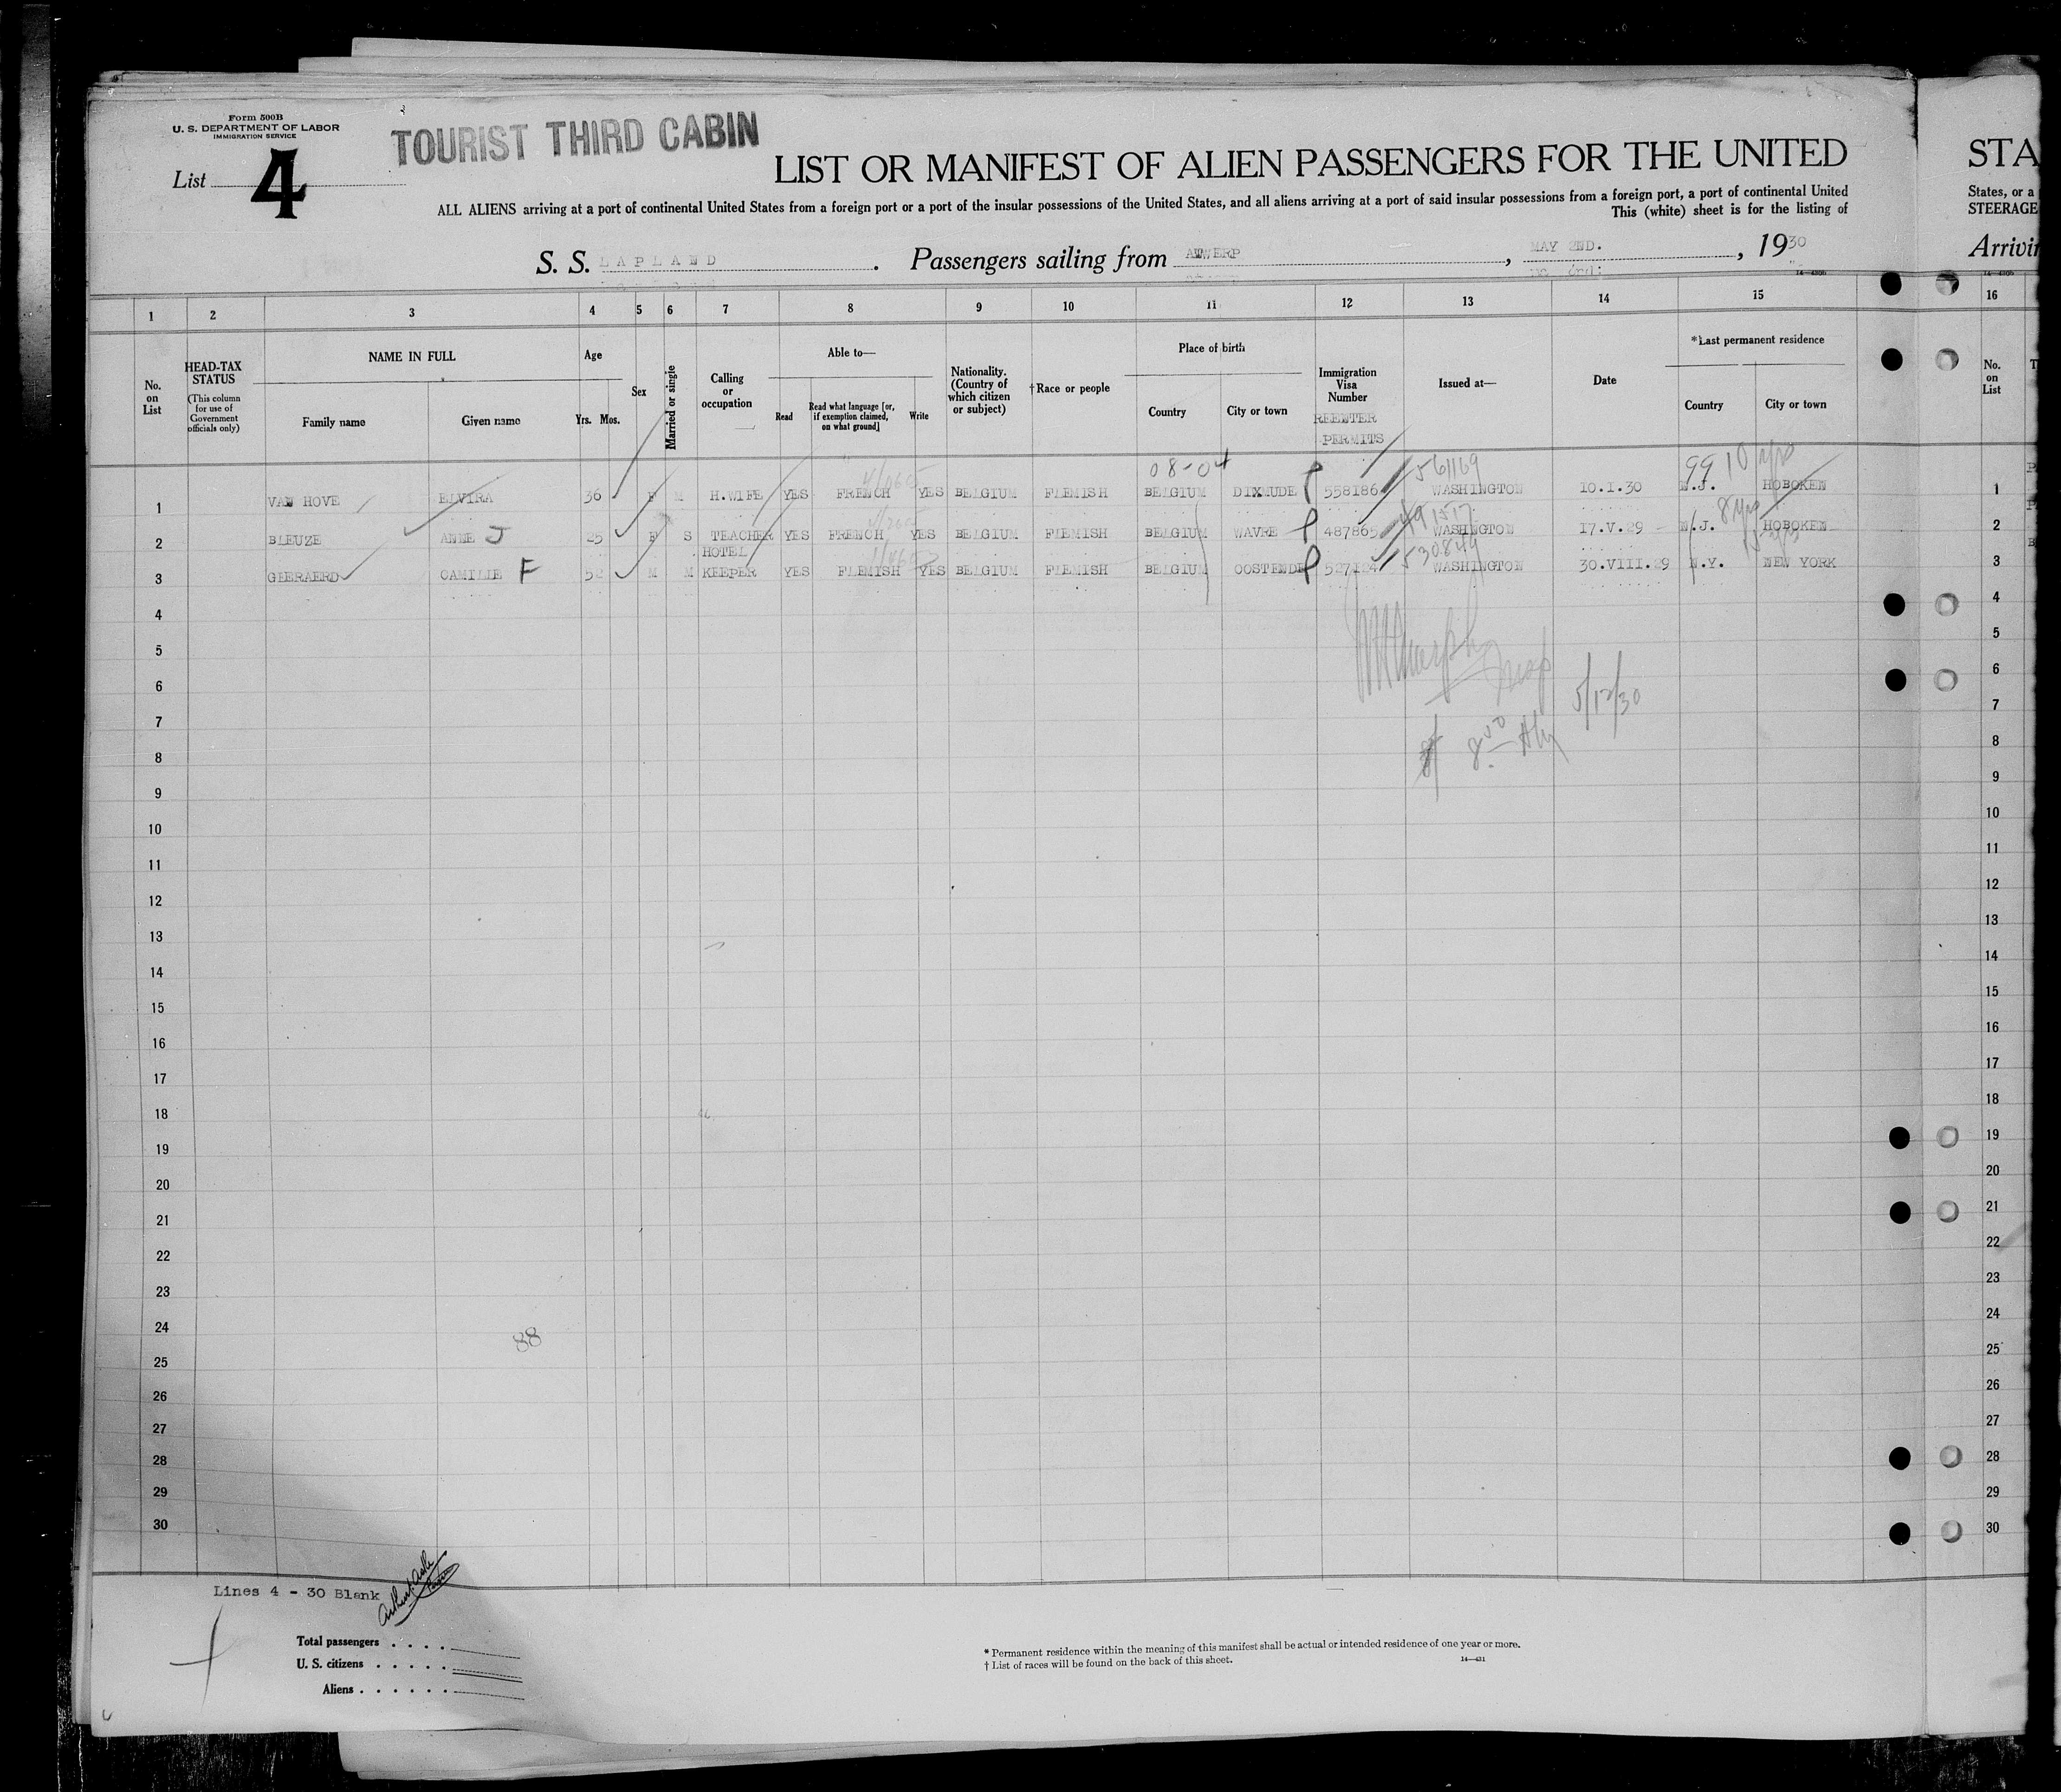 Form 500B
U. S. DEPARTMENT OF LABOR
IMMIGRATION SERVICE
List 4
TOURIST THIRD CABIN
LIST OR MANIFEST OF ALIEN PASSENGERS FOR THE UNITED
STA
ALL ALIENS arriving at a port of continental United States from a foreign port or a port of the insular possessions of the United States, and all aliens arriving at a port of said insular possessions from a foreign port, a port of continental United
States, or a
This (white) sheet is for the listing of
STEERAGE
S. S. LAPLAND . Passengers sailing from ANWERP , MAY 2ND. , 1930
Arrivin
1 2 3 4 5 6 7 8 9 10 11 12 13 14 15 16
No. on List
HEAD-TAX STATUS
(This column for use of Government officials only)
NAME IN FULL
Family name Given name
Age
Yrs. Mos.
Sex
Married or single
Calling or occupation
Able to—
Read
Read what language [or, if exemption claimed, on what ground]
Write
Nationality. (Country of which citizen or subject)
†Race or people
Place of birth
Country City or town
Immigration Visa Number
REENTER PERMITS
Issued at—
Date
*Last permanent residence
Country City or town
No. on List
08-04 561169 99 10 yrs
1 VAN HOVE ELVIRA 36 F M H.WIFE YES FRENCH YES BELGIUM FLEMISH BELGIUM DIXMUDE 558186 WASHINGTON 10.I.30 N.J. HOBOKEN 1
491517 8 yrs
2 BLEUZE ANNE J 25 F S TEACHER YES FRENCH YES BELGIUM FLEMISH BELGIUM WAVRE 487865 WASHINGTON 17.V.29 N.J. HOBOKEN 2
530844
3 GEERAERD CAMILLE F 52 M M HOTEL KEEPER YES FLEMISH YES BELGIUM FLEMISH BELGIUM OOSTENDE 527124 WASHINGTON 30.VIII.29 N.Y. NEW YORK 3
4 4
5 5
6 6
5/12/30
7 7
8 8
9 9
10 10
11 11
12 12
13 13
14 14
15 15
16 16
17 17
18 18
19 19
20 20
21 21
22 22
23 23
24 24
88
25 25
26 26
27 27
28 28
29 29
30 30
Lines 4 - 30 Blank
Total passengers
U. S. citizens
Aliens
* Permanent residence within the meaning of this manifest shall be actual or intended residence of one year or more.
† List of races will be found on the back of this sheet.
14—431